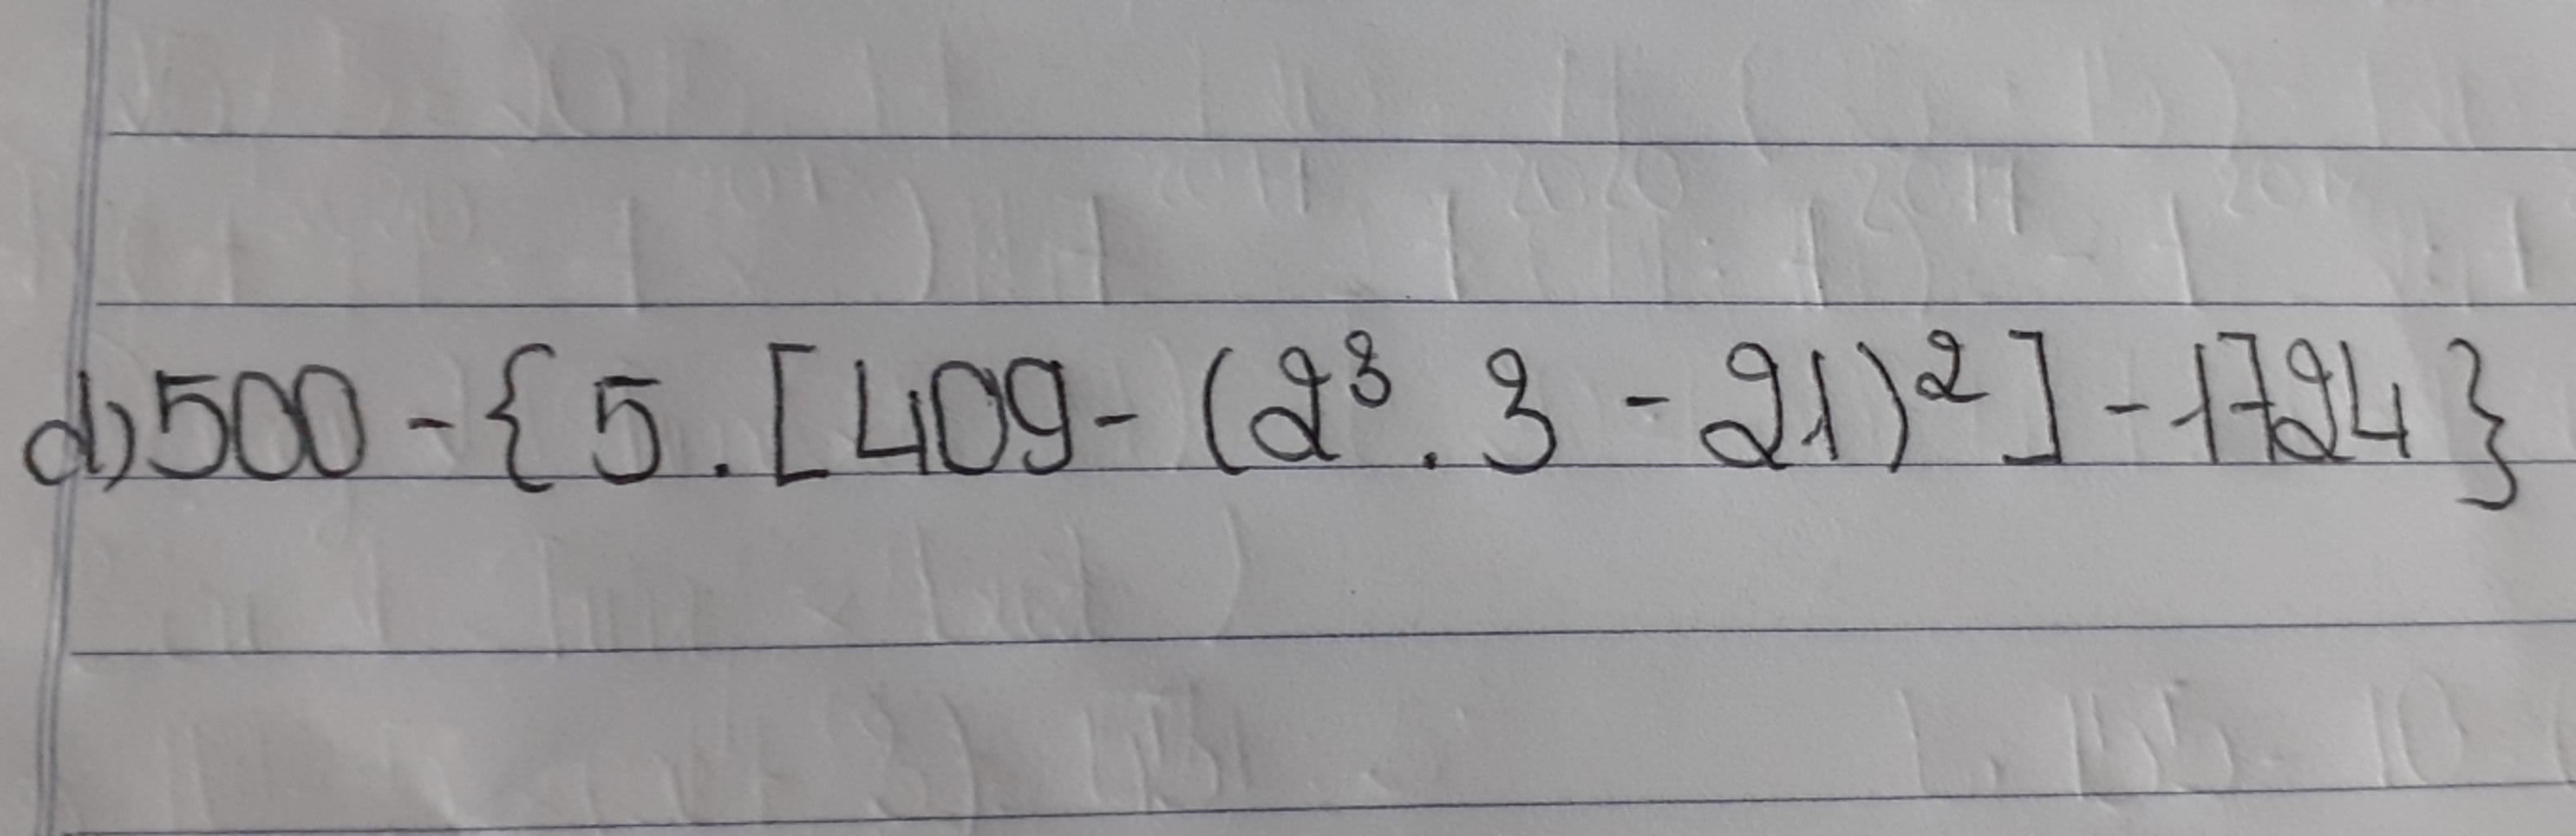 d) 500 - { 5 . [ 409 - ( 2³ . 3 - 21 )² ] - 1724 }